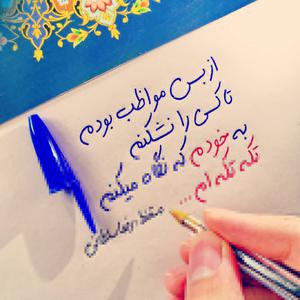 از بس مواظب بودم
تا کسی را نشکنم
به خودم که نگاه میکنم
تکه تکه ام ...